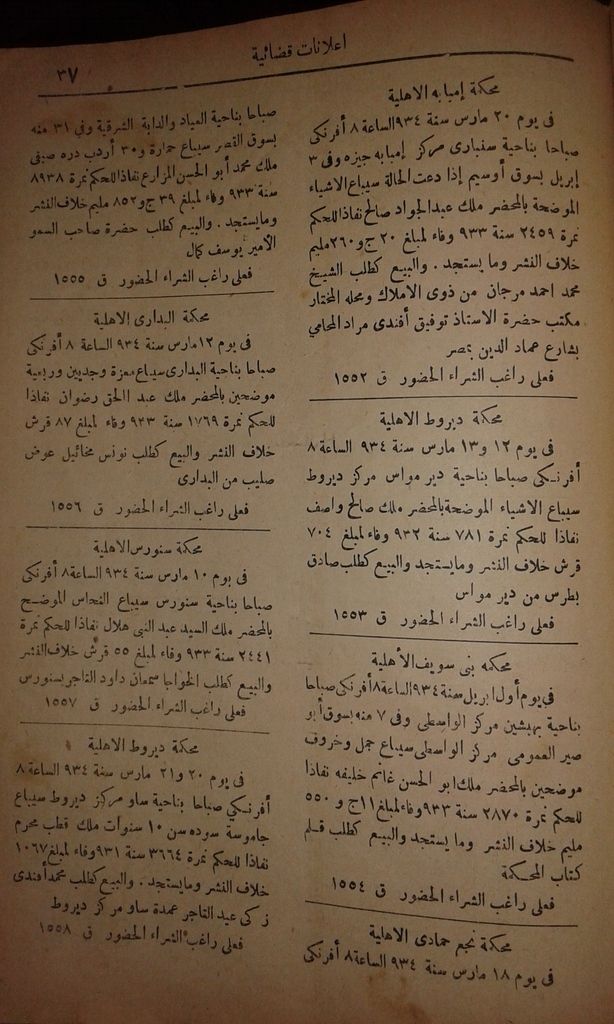 اعلانات قضائية
٣٧
محكمة إمبابه الاهلية
فى يوم ٢٠ مارس سنة ٩٣٤ الساعة ٨ أفرنكى
صباحا بناحية سنبارى مركز إمبابه جيزه وفى ٣
إبريل بسوق أوسيم إذا دعت الحالة سيباع الاشياء
الموضحة بالمحضر ملك عبد الجواد صالح نفاذا للحكم
نمرة ٢٤٥٩ سنة ٩٣٣ وفاء لمبلغ ٢٠ ج و ٢٦٠ مليم
خلاف النشر وما يستجد . والبيع كطلب الشيخ
محمد احمد مرجان من ذوى الاملاك ومحله المختار
مكتب حضرة الاستاذ توفيق أفندى مراد المحامي
بشارع عماد الدين بمصر
فعلى راغب الشراء الحضور ق ١٥٥٢
محكمة ديروط الاهلية
فى يوم ١٢ و١٣ مارس سنة ٩٣٤ الساعة ٨
أفرنكى صباحا بناحية دير مواس مركز ديروط
سيباع الاشياء الموضحة بالمحضر ملك صالح واصف
نفاذا للحكم نمرة ٧٨١ سنة ٩٣٢ وفاء لمبلغ ٧٠٤
قرش خلاف النشر ومايستجد والبيع كطلب صادق
بطرس من دير مواس
فعلى راغب الشراء الحضور ق ١٥٥٣
محكمه بنى سويف الأهلية
فى يوم أول ابريل سنة ٩٣٤ الساعة ٨ أفرنكى صباحا
بناحية بهبشين مركز الواسطى وفى ٧ منه بسوق أبو
صير العمومى مركز الواسطى سيباع جمل وخروف
موضحين بالمحضر ملك ابو الحسن غانم خليفه نفاذا
للحكم نمرة ٢٨٧٠ سنة ٩٣٣ وفاء لمبلغ ١١ ج و ٥٥٠
مليم خلاف النشر وما يستجد والبيع كطلب قلم
كتاب المحكمة
فعلى راغب الشراء الحضور ق ١٥٥٤
محكمة نجع حمادى الاهلية
فى يوم ١٨ مارس سنة ٩٣٤ الساعة ٨ أفرنكى
صباحا بناحية العياد والدابة الشرقية وفي ٣١ منه
بسوق القصر سيباع حمارة و ٣٠ أردب دره صيفى
ملك محمد أبو الحسن المزارع نفاذا للحكم نمرة ٨٩٣٨
سنة ٩٣٣ وفاء لمبلغ ٣٩ ج و ٨٥٢ مليم خلاف النشر
ومايستجد . والبيع كطلب حضرة صاحب السمو
الأمير يوسف كمال
فعلى راغب الشراء الحضور ق ١٥٥٥
محكمة البدارى الاهلية
فى يوم ١٢ مارس سنة ٩٣٤ الساعة ٨ أفرنكى
صباحا بناحية البدارى سيباع معزة وجديين وربعية
موضحين بالمحضر ملك عبد الحق رضوان نفاذا
للحكم نمرة ١٧٦٩ سنة ٩٣٣ وفاء لمبلغ ٨٧ قرش
خلاف النشر والبيع كطلب تونس مخائيل عوض
صليب من البدارى
فعلى راغب الشراء الحضور ق ١٥٥٦
محكمة سنورس الاهلية
فى يوم ١٠ مارس سنة ٩٣٤ الساعة ٨ أفرنكى
صباحا بناحية سنورس سيباع النحاس الموضح
بالمحضر ملك السيد عبد النبى هلال نفاذا للحكم نمرة
٢٤٤١ سنة ٩٣٣ وفاء لمبلغ ٥٥ قرش خلاف النشر
والبيع كطلب الخواجا سمعان داود التاجر بسنورس
فعلى راغب الشراء الحضور ق ١٥٥٧
محكمة ديروط الاهلية
فى يوم ٢٠ و ٢١ مارس سنة ٩٣٤ الساعة ٨
أفرنكي صباحا بناحية ساو مركز ديروط سيباع
جاموسة سوده سن ١٠ سنوات ملك قطب محرم
نفاذا للحكم نمرة ٣٦٦٤ سنة ٩٣١ وفاء لمبلغ ١٠٦٧
خلاف النشر ومايستجد . والبيع كطلب محمد أفندى
زكى عيد التاجر عمدة ساو مركز ديروط
فعلى راغب الشراء الحضور ق ١٥٥٨